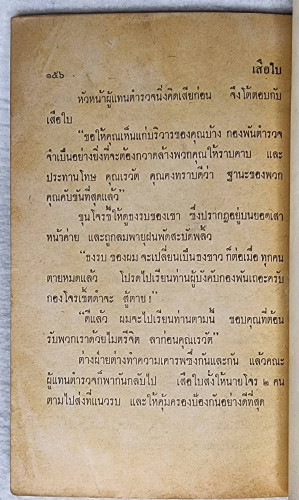 ๑๕๖ เสือใบ
หัวหน้าผู้แทนตำรวจนิ่งคิดเสียก่อน จึงโต้ตอบกับ
เสือใบ
“ขอให้คุณเห็นแก่บริวารของคุณบ้าง กองพันตำรวจ
จำเป็นอย่างยิ่งที่จะต้องกวาดล้างพวกคุณให้ราบคาบ และ
ประทานโทษ คุณเรวัต คุณคงทราบดีว่า ฐานะของพวก
คุณคับขันที่สุดแล้ว”
ขุนโจรชี้ให้ดูธงรบของเขา ซึ่งปรากฏอยู่บนยอดเสา
หน้าค่าย และถูกลมพายุฝนพัดสะบัดพลิ้ว
“ธงรบ ของผม จะเปลี่ยนเป็นธงขาว ก็ต่อเมื่อ ทุกคน
ตายหมดแล้ว โปรดไปเรียนท่านผู้บังคับกองพันเถอะครับ
กองโจรเชิ้ตดำจะ สู้ตาย !”
“ดีแล้ว ผมจะไปเรียนท่านตามนี้ ขอบคุณที่ต้อน
รับพวกเราด้วยไมตรีจิต ลาก่อนคุณเรวัต”
ต่างฝ่ายต่างทำความเคารพซึ่งกันและกัน แล้วคณะ
ผู้แทนตำรวจก็พากันกลับไป เสือใบสั่งให้นายโจร ๒ คน
ตามไปส่งที่แนวรบ และให้คุ้มครองป้องกันอย่างดีที่สุด